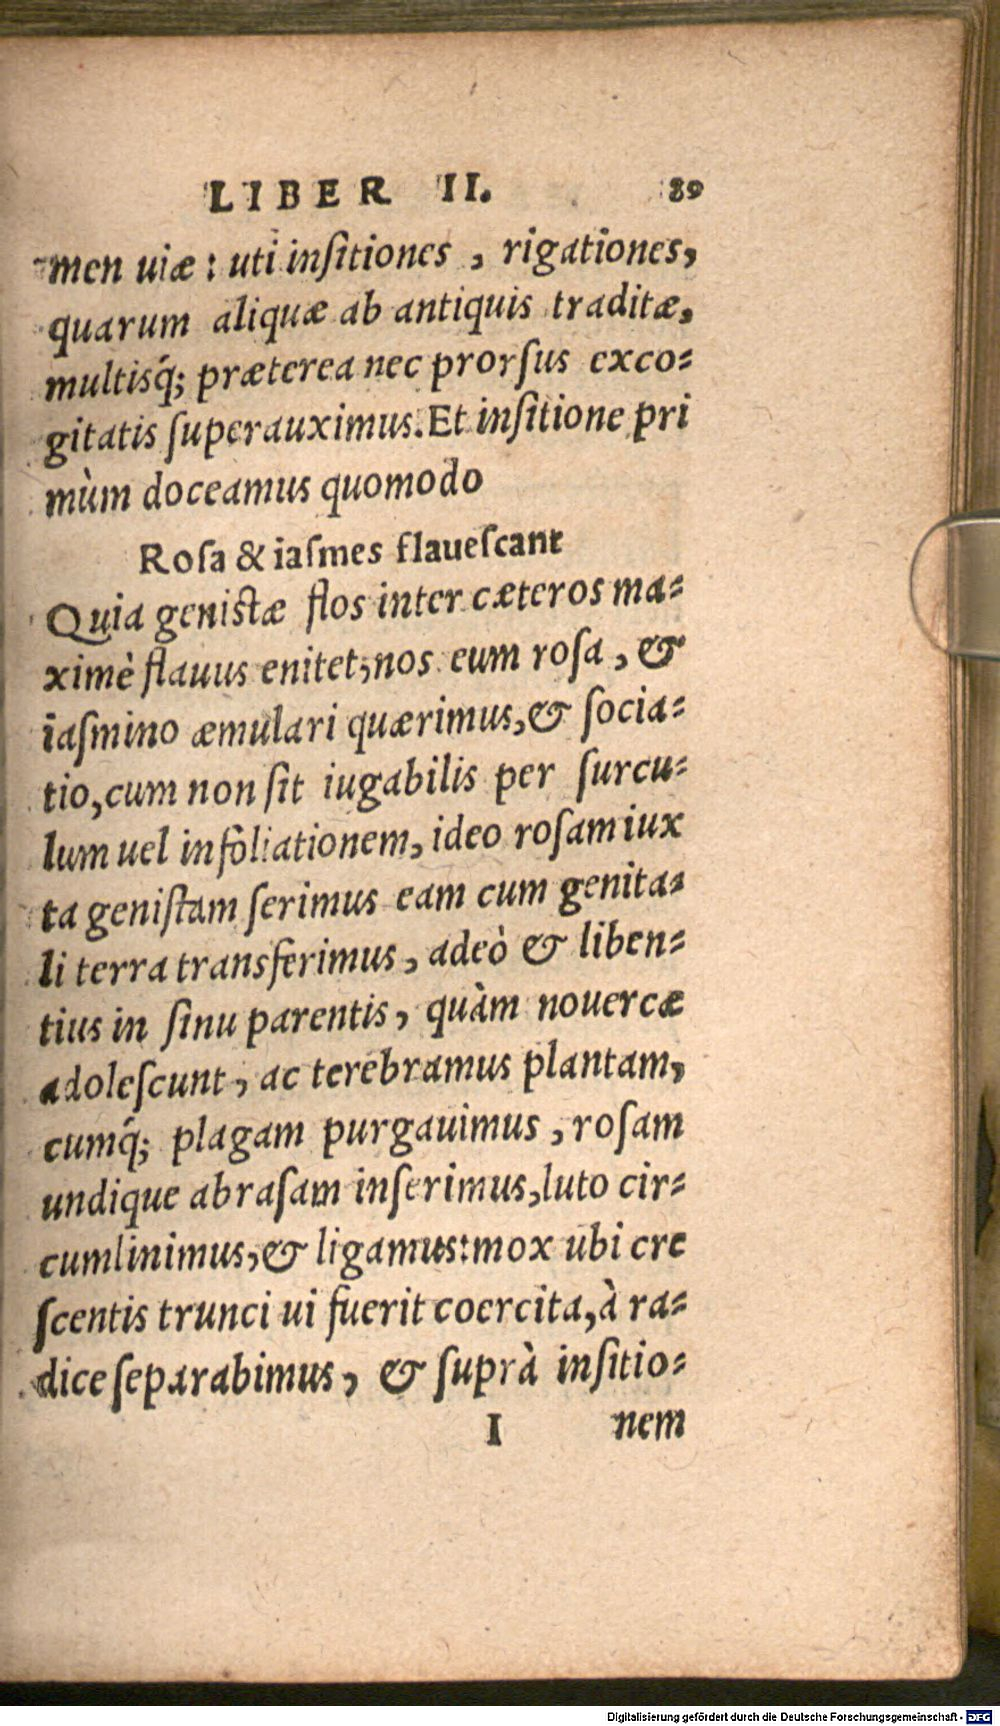 LIBER II. 89
men uiæ: uti insitiones, rigationes,
quarum aliquæ ab antiquis traditæ,
multisq́; præterea nec prorsus exco-
gitatis superauximus. Et insitione pri
mùm doceamus quomodo
Rosa & iasmes flauescant
Quia genistæ flos inter cæteros ma-
ximè flauus enitet, nos eum rosa, &
iasmino æmulari quærimus, & socia-
tio, cum non sit iugabilis per surcu-
lum uel infoliationem, ideo rosam iux
ta genistam serimus eam cum genita-
li terra transferimus, adeò & liben-
tius in sinu parentis, quàm nouercæ
adolescunt, ac terebramus plantam,
cumq́; plagam purgauimus, rosam
undique abrasam inserimus, luto cir-
cumlinimus, & ligamus: mox ubi cre
scentis trunci ui fuerit coercita, à ra-
dice separabimus, & suprà insitio-
I nem
Digitalisierung gefördert durch die Deutsche Forschungsgemeinschaft - DFG